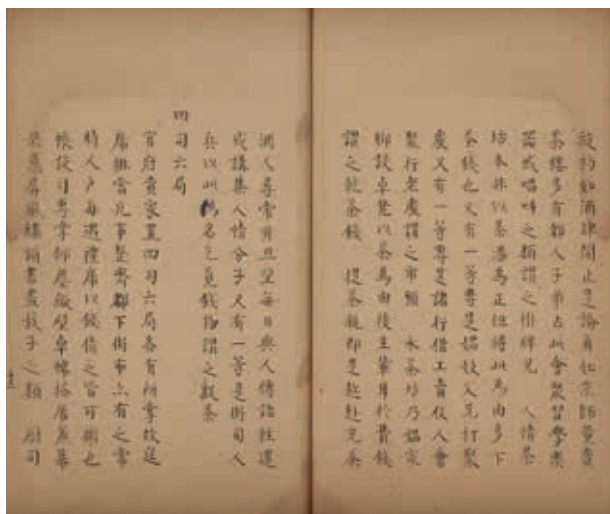 旋杓如酒肆間止是論角如京師量賣
茶樓多有都人子弟占此會聚習學樂
器或唱叫之類謂之掛牌兒 人情茶
坊本非以茶湯為正但將此為由多下
茶錢也又有一等專是娼妓父兄打聚
處又有一等專是諸行借工賣伎人會
聚行老處謂之市頭 水茶坊乃娼家
聊設卓凳以茶為由後生輩甘於費錢
謂之乾茶錢 提茶瓶即是趁赴充茶
酒人尋常月旦望每日與人傳語往還
或講集人情分子又有一等是街司人
兵以此為名乞覓錢物謂之齪茶
四司六局
官府貴家置四司六局各有所掌故筵
席排當凡事整齊都下街市亦有之常
時人戶每遇禮席以錢倩之皆可辦也
帳設司專掌仰塵繳壁卓幃搭席簾幕
罘罳屏風繡額書畫簇子之類 廚司